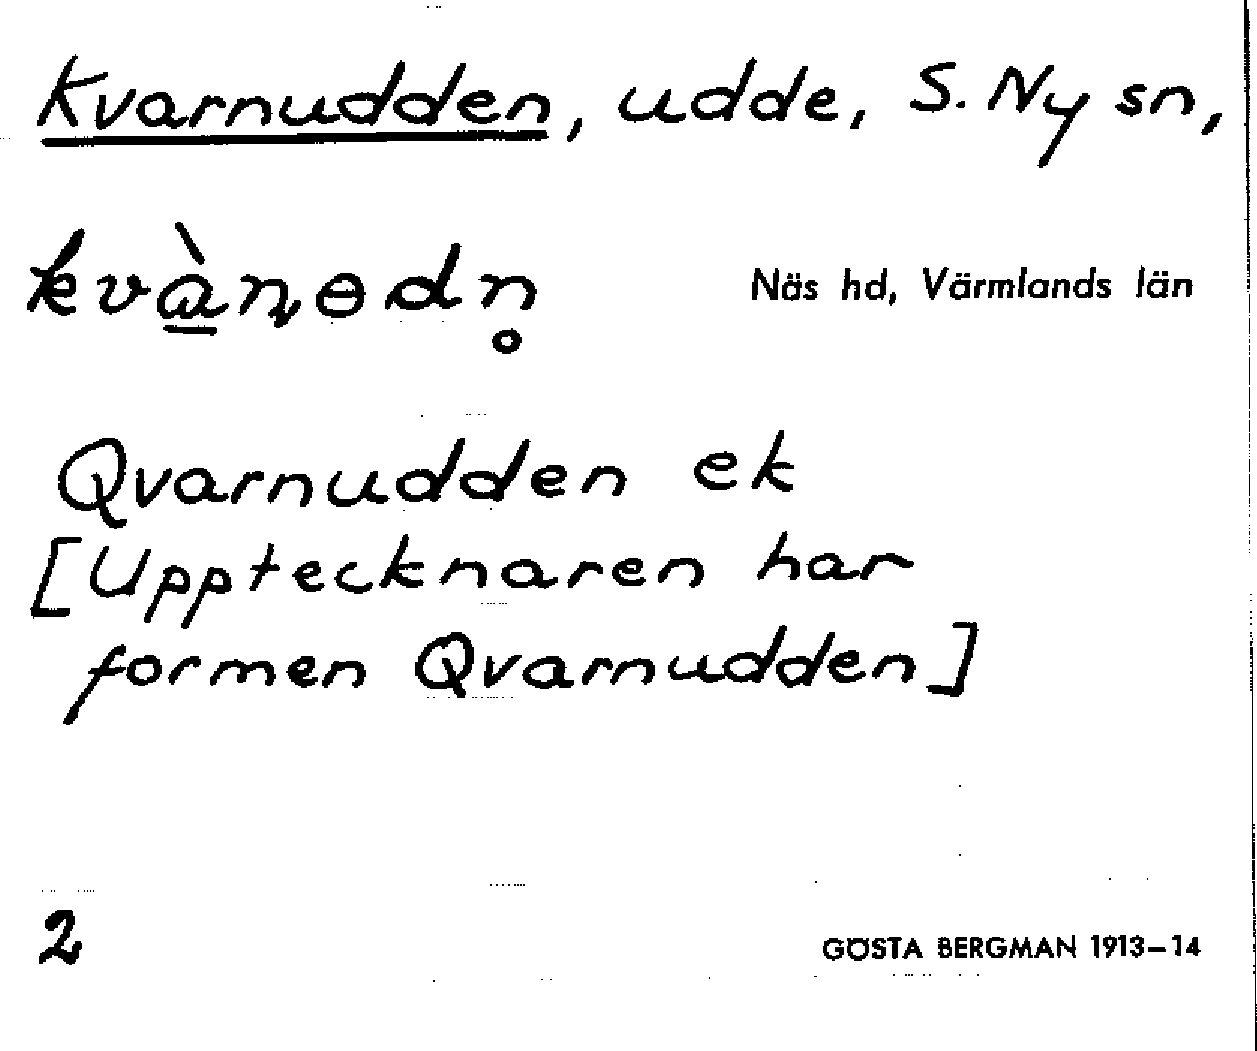 Kvarnudden, udde, S. Ny sn,
kvàn̨ɵdn̥ Näs hd, Värmlands län
Qvarnudden ek
[Upptecknaren har
formen Qvarnudden]
2 GÖSTA BERGMAN 1913–14